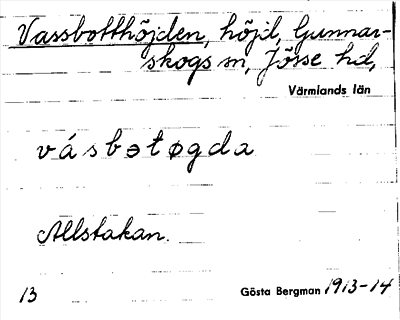 Vassbotthöjden, höjd, Gunnar-
skogs sn, Jösse hd,
Värmlands län
vásbətøgda
Allstakan.
13 Gösta Bergman 1913-14